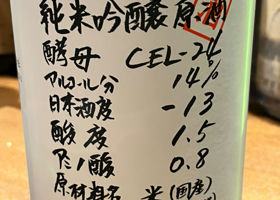 純米吟醸原酒
酵母 CEL-24
アルコール分 14%
日本酒度 -13
酸度 1.5
アミノ酸 0.8
原材料名 米(国産)